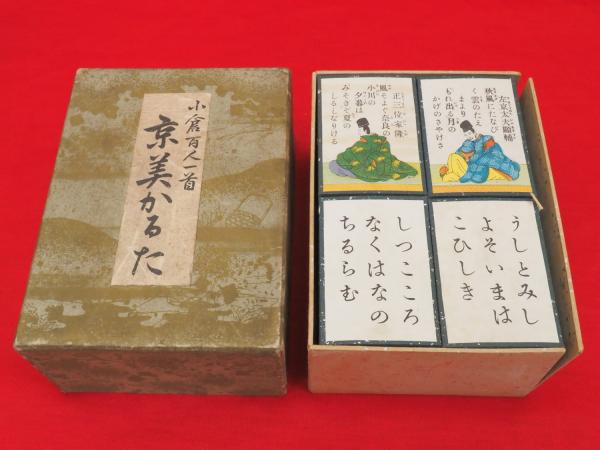 小倉百人一首
京美かるた
正三位家隆
風そよぐ奈良の
小川の
夕暮は
みそぎぞ夏の
しるしなりける
左京大夫顕輔
秋風にたなび
く雲のたえ
まより
もれ出る月の
かげのさやけさ
しつこころ
なくはなの
ちるらむ
うしとみし
よそいまは
こひしき